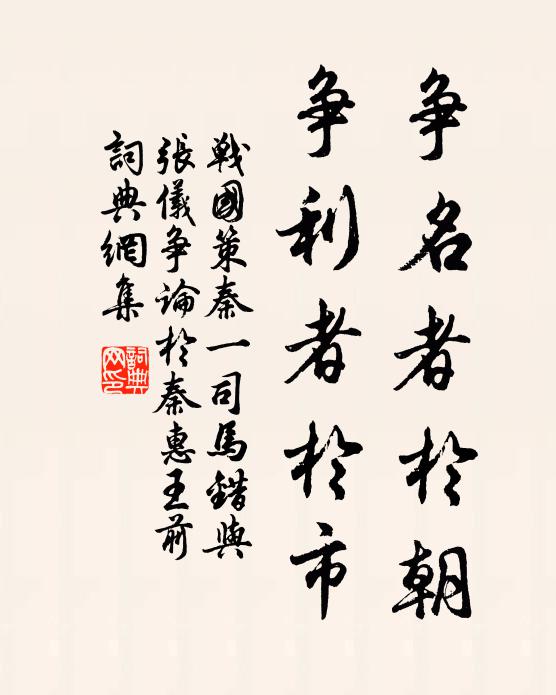 争名者於朝
争利者於市
戰國策秦一司馬錯與
張儀争論於秦惠王前
詞典網集
詞典
网印